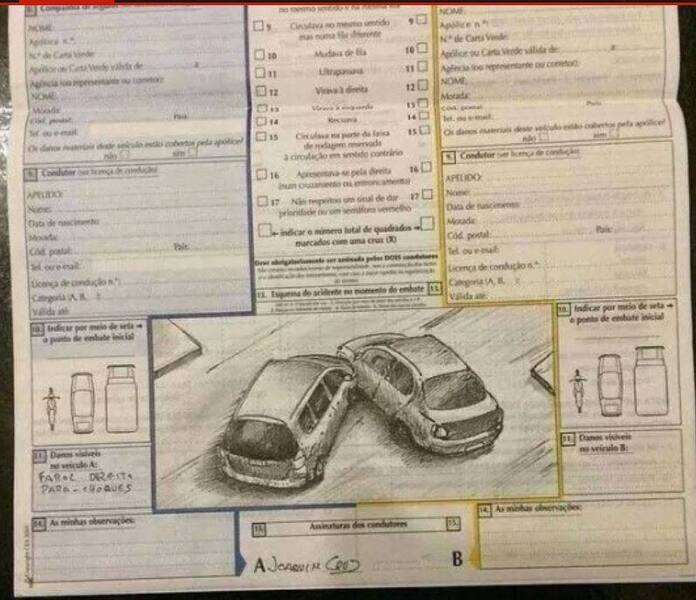 NOME:
Apólice n.º:
N.º de Carta Verde:
Apólice ou Carta Verde válida de:
a
Agência (ou representante ou corretor):
NOME:
Morada:
Cód. postal:
País:
Tel. ou e-mail:
Os danos materiais deste veículo estão cobertos pela apólice?
não
sim
9. Condutor (ver licença de condução)
APELIDO:
Nome:
Data de nascimento:
Morada:
Cód. postal:
País:
Tel. ou e-mail:
Licença de condução n.º:
Categoria (A, B, ):
Válida até:
10. Indicar por meio de seta
o ponto de embate inicial
11. Danos visíveis
no veículo A:
FAROL DIREITO
PARA-CHOQUES
14. As minhas observações:
9 Circulava no mesmo sentido 9
mas numa fila diferente
10 Mudava de fila 10
11 Ultrapassava 11
12 Virava à direita 12
13 Virava à esquerda 13
14 Recuava 14
15 Circulava na parte da faixa 15
de rodagem reservada
à circulação em sentido contrário
16 Apresentava-se pela direita 16
(num cruzamento ou entroncamento)
17 Não respeitou um sinal de dar 17
prioridade ou um semáforo vermelho
← indicar o número total de quadrados →
marcados com uma cruz (X)
Deve obrigatoriamente ser assinada pelos DOIS condutores
13. Esquema do acidente no momento do embate 13.
15. Assinaturas dos condutores 15.
A JOAQUIM CRUZ
B
NOME:
Apólice n.º:
N.º de Carta Verde:
Apólice ou Carta Verde válida de:
a
Agência (ou representante ou corretor):
NOME:
Morada:
Cód. postal:
País:
Tel. ou e-mail:
Os danos materiais deste veículo estão cobertos pela apólice?
não
sim
9. Condutor (ver licença de condução)
APELIDO:
Nome:
Data de nascimento:
Morada:
Cód. postal:
País:
Tel. ou e-mail:
Licença de condução n.º:
Categoria (A, B, ):
Válida até:
10. Indicar por meio de seta
o ponto de embate inicial
11. Danos visíveis
no veículo B:
14. As minhas observações: